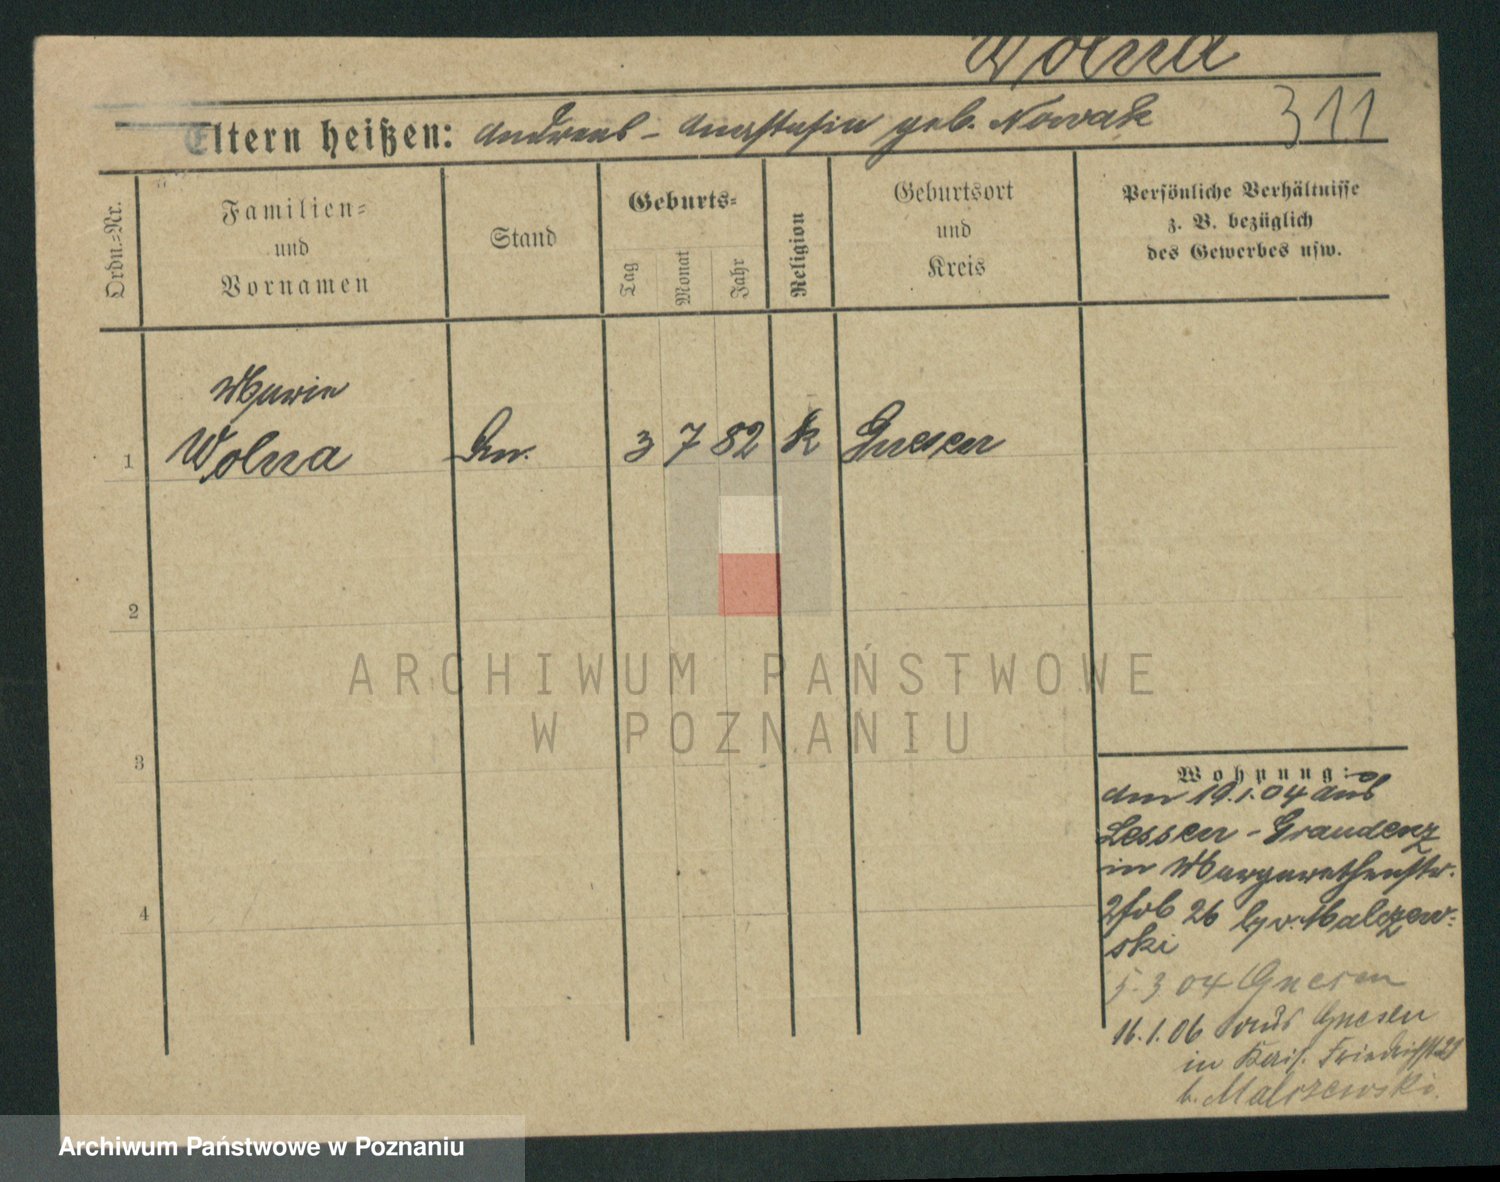 Wolna
Eltern heißen: Andreas - Anastasia geb. Nowak
311
Ordn.=Nr.
Familien=
und
Vornamen
Stand
Geburts=
Tag
Monat
Jahr
Religion
Geburtsort
und
Kreis
Persönliche Verhältnisse
z. B. bezüglich
des Gewerbes usw.
Marie
1 Wolna 3 7 82 k Gnesen
2
3
4
Wohnung:
am 19.1.04 aus
Lessen - Graudenz
in Margarethenstr.
26 Malczew-
ski
5.3 04 Gnesen
16.1.06 aus Gnesen
in Kais. Friedrichstr 29
b. Malczewski.
ARCHIWUM PAŃSTWOWE
W POZNANIU
Archiwum Państwowe w Poznaniu